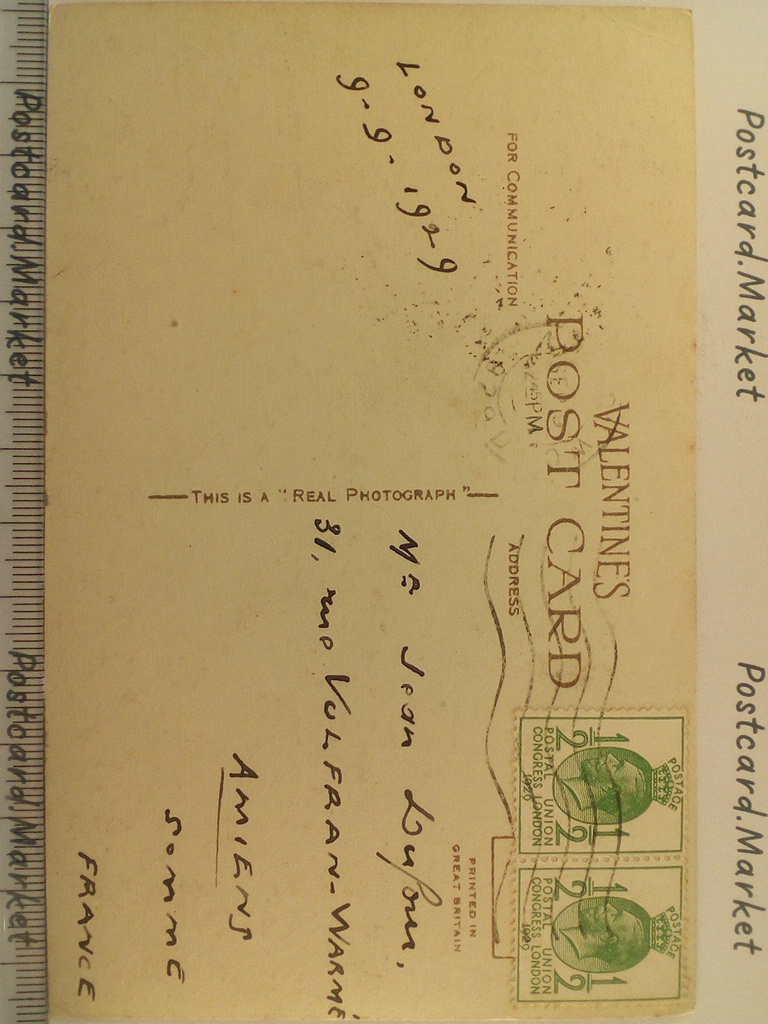 Postcard.Market
Postcard.Market
VALENTINE'S
POST CARD
FOR COMMUNICATION
ADDRESS
LONDON
9-9-1929
45PM
THIS IS A "REAL PHOTOGRAPH"
Mr Jean Dufour,
31, rue VULFRAN-WARMÉ
AMIENS
SOMME
FRANCE
PRINTED IN
GREAT BRITAIN
POSTAGE
1/2 1/2
POSTAL UNION
CONGRESS LONDON
1929
POSTAGE
1/2 1/2
POSTAL UNION
CONGRESS LONDON
1929
Postcard.Market
Postcard.Market